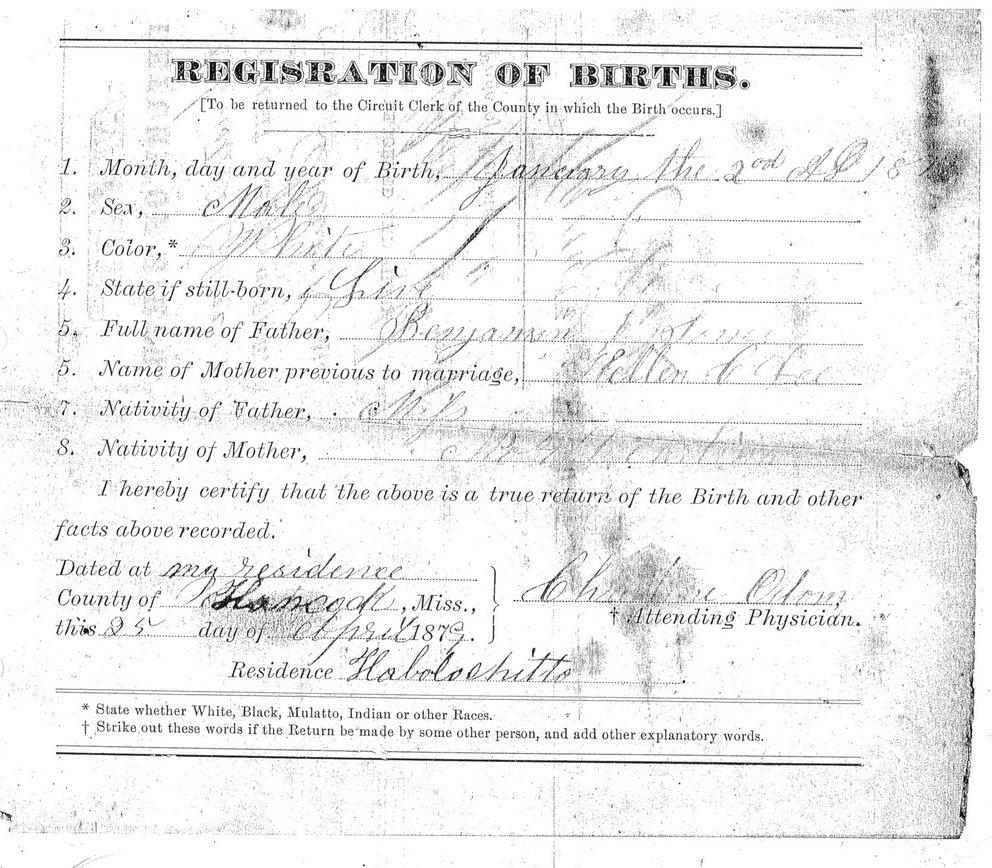 REGISRATION OF BIRTHS.
[To be returned to the Circuit Clerk of the County in which the Birth occurs.]
1. Month, day and year of Birth, January the 2nd AD 18
2. Sex, Male
3. Color,* White
4. State if still-born, Live
5. Full name of Father, Benjamin
5. Name of Mother previous to marriage, Hellen C Lee
7. Nativity of Father, Miss
8. Nativity of Mother,
I hereby certify that the above is a true return of the Birth and other
facts above recorded.
Dated at my residence
County of Hancock, Miss.,
this 25 day of April 1879.
Odom
† Attending Physician.
Residence Habolochitto
* State whether White, Black, Mulatto, Indian or other Races.
† Strike out these words if the Return be made by some other person, and add other explanatory words.